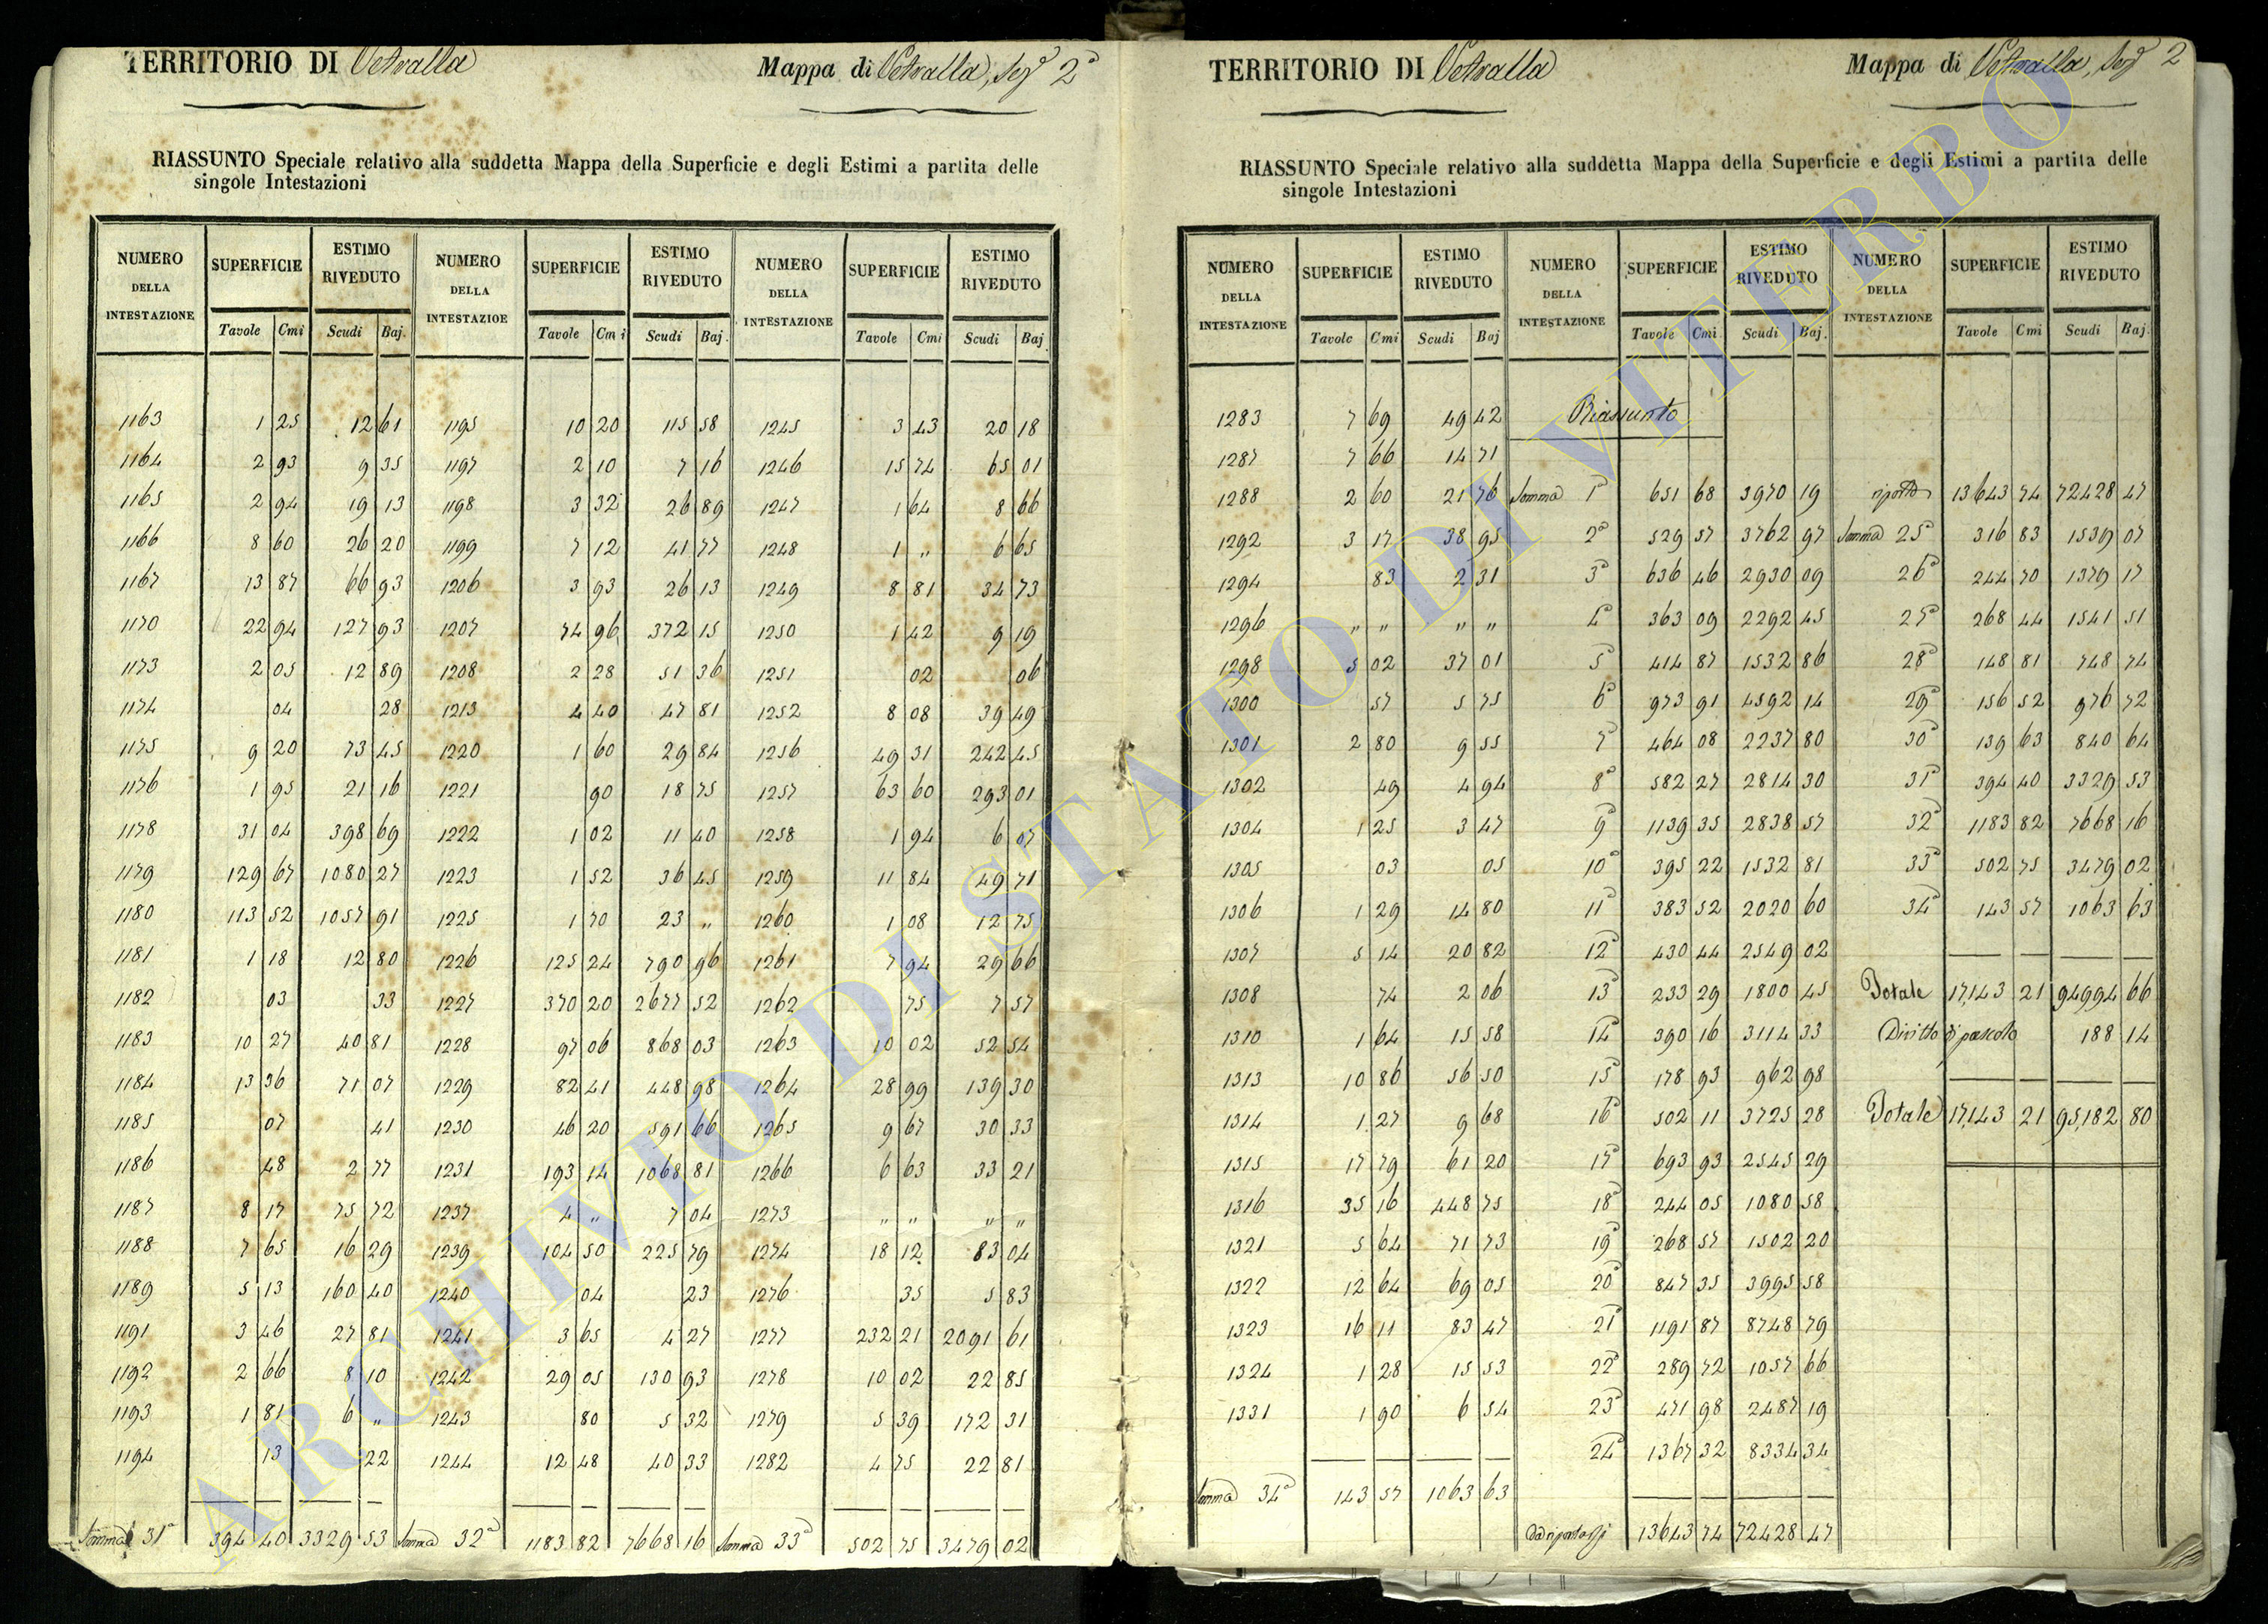 TERRITORIO DI Vetralla Mappa di Vetralla, Sez.ª 2ª
RIASSUNTO Speciale relativo alla suddetta Mappa della Superficie e degli Estimi a partita delle
singole Intestazioni
NUMERO DELLA INTESTAZIONE SUPERFICIE ESTIMO RIVEDUTO NUMERO DELLA INTESTAZIOE SUPERFICIE ESTIMO RIVEDUTO NUMERO DELLA INTESTAZIONE SUPERFICIE ESTIMO RIVEDUTO
Tavole Cmi Scudi Baj. Tavole Cmi Scudi Baj. Tavole Cmi Scudi Baj.
1163 1 25 12 61 1195 10 20 115 58 1245 3 43 20 18
1164 2 93 9 35 1197 2 10 7 16 1246 15 74 65 01
1165 2 94 19 13 1198 3 32 26 89 1247 1 64 8 66
1166 8 60 26 20 1199 7 12 41 77 1248 1 „ 6 65
1167 13 87 66 93 1206 3 93 26 13 1249 8 81 34 73
1170 22 94 127 93 1207 74 96 372 15 1250 1 42 9 19
1173 2 05 12 89 1208 2 28 51 36 1251 02 06
1174 04 28 1213 4 40 47 81 1252 8 08 39 49
1175 9 20 73 45 1220 1 60 29 84 1256 49 31 242 45
1176 1 95 21 16 1221 90 18 75 1257 63 60 293 01
1178 31 04 398 69 1222 1 02 11 40 1258 1 94 6 07
1179 129 67 1080 27 1223 1 52 36 45 1259 11 84 49 71
1180 113 52 1057 91 1225 1 70 23 „ 1260 1 08 12 75
1181 1 18 12 80 1226 125 24 790 96 1261 7 94 29 66
1182 03 33 1227 370 20 2677 52 1262 75 7 57
1183 10 27 40 81 1228 97 06 868 03 1263 10 02 52 54
1184 13 36 71 07 1229 82 41 448 98 1264 28 99 139 30
1185 07 41 1230 46 20 591 66 1265 9 67 30 33
1186 48 2 77 1231 193 14 1068 81 1266 6 63 33 21
1187 8 17 75 72 1237 4 „ 7 04 1273 „ „ „ „
1188 7 65 16 29 1239 104 50 225 79 1274 18 12 83 04
1189 5 13 160 40 1240 04 23 1276 35 5 83
1191 3 46 27 81 1241 3 65 4 27 1277 232 21 2091 61
1192 2 66 8 10 1242 29 05 130 93 1278 10 02 22 85
1193 1 81 6 „ 1243 80 5 32 1279 5 39 172 31
1194 13 22 1244 12 48 40 33 1282 4 75 22 81
Somma 31ª 394 40 3329 53 Somma 32ª 1183 82 7668 16 Somma 33ª 502 75 3479 02
TERRITORIO DI Vetralla Mappa di Vetralla, Sez.ª 2
RIASSUNTO Speciale relativo alla suddetta Mappa della Superficie e degli Estimi a partita delle
singole Intestazioni
NUMERO DELLA INTESTAZIONE SUPERFICIE ESTIMO RIVEDUTO NUMERO DELLA INTESTAZIONE SUPERFICIE ESTIMO RIVEDUTO NUMERO DELLA INTESTAZIONE SUPERFICIE ESTIMO RIVEDUTO
Tavole Cmi Scudi Baj Tavole Cmi Scudi Baj. Tavole Cmi Scudi Baj.
1283 7 69 49 42 Riassunto
1287 7 66 14 71
1288 2 60 21 76 Somma 1ª 651 68 3970 19 riporto 13643 74 72428 47
1292 3 17 38 95 2ª 529 57 3762 97 Somma 25ª 316 83 1539 07
1294 83 2 31 3ª 636 46 2930 09 26ª 244 70 1379 17
1296 „ „ „ „ 4ª 363 09 2292 45 27ª 268 44 1541 51
1298 5 02 37 01 5ª 414 87 1532 86 28ª 148 81 748 74
1300 57 5 75 6ª 973 91 4592 14 29ª 156 52 976 72
1301 2 80 9 55 7ª 464 08 2237 80 30ª 139 63 840 64
1302 49 4 94 8ª 582 27 2814 30 31ª 394 40 3329 53
1304 1 25 3 47 9ª 1139 35 2838 57 32ª 1183 82 7668 16
1305 03 05 10ª 395 22 1532 81 33ª 502 75 3479 02
1306 1 29 14 80 11ª 383 52 2020 60 34ª 143 57 1063 63
1307 5 14 20 82 12ª 430 44 2549 02
1308 74 2 06 13ª 233 29 1800 45 Totale 17,143 21 94994 66
1310 1 64 15 58 14ª 390 16 3114 33 Diritto di pascolo 188 14
1313 10 86 56 50 15ª 178 93 962 98
1314 1 27 9 68 16ª 502 11 3725 28 Totale 17,143 21 95,182 80
1315 17 79 61 20 17ª 693 93 2545 29
1316 35 16 448 75 18ª 244 05 1080 58
1321 5 64 71 73 19ª 268 57 1502 20
1322 12 64 69 05 20ª 847 35 3995 58
1323 16 11 83 47 21ª 1191 87 8748 79
1324 1 28 15 53 22ª 289 72 1057 66
1331 1 90 6 54 23ª 471 98 2487 19
24ª 1367 32 8334 34
Somma 34ª 143 57 1063 63
Da riportarsi 13643 74 72428 47
ARCHIVIO DI STATO DI VITERBO